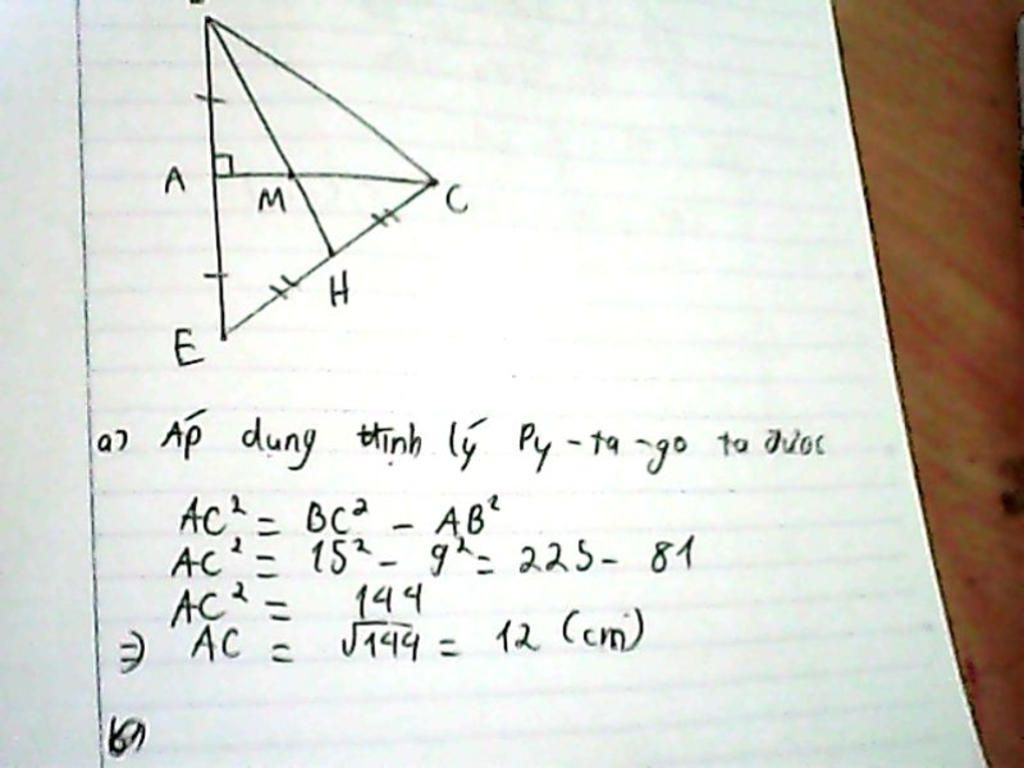 A
M
C
H
E
a) Áp dụng định lý Py-ta-go ta được
AC² = BC² - AB²
AC² = 15² - 9² = 225 - 81
AC² = 144
⇒ AC = √144 = 12 (cm)
b)